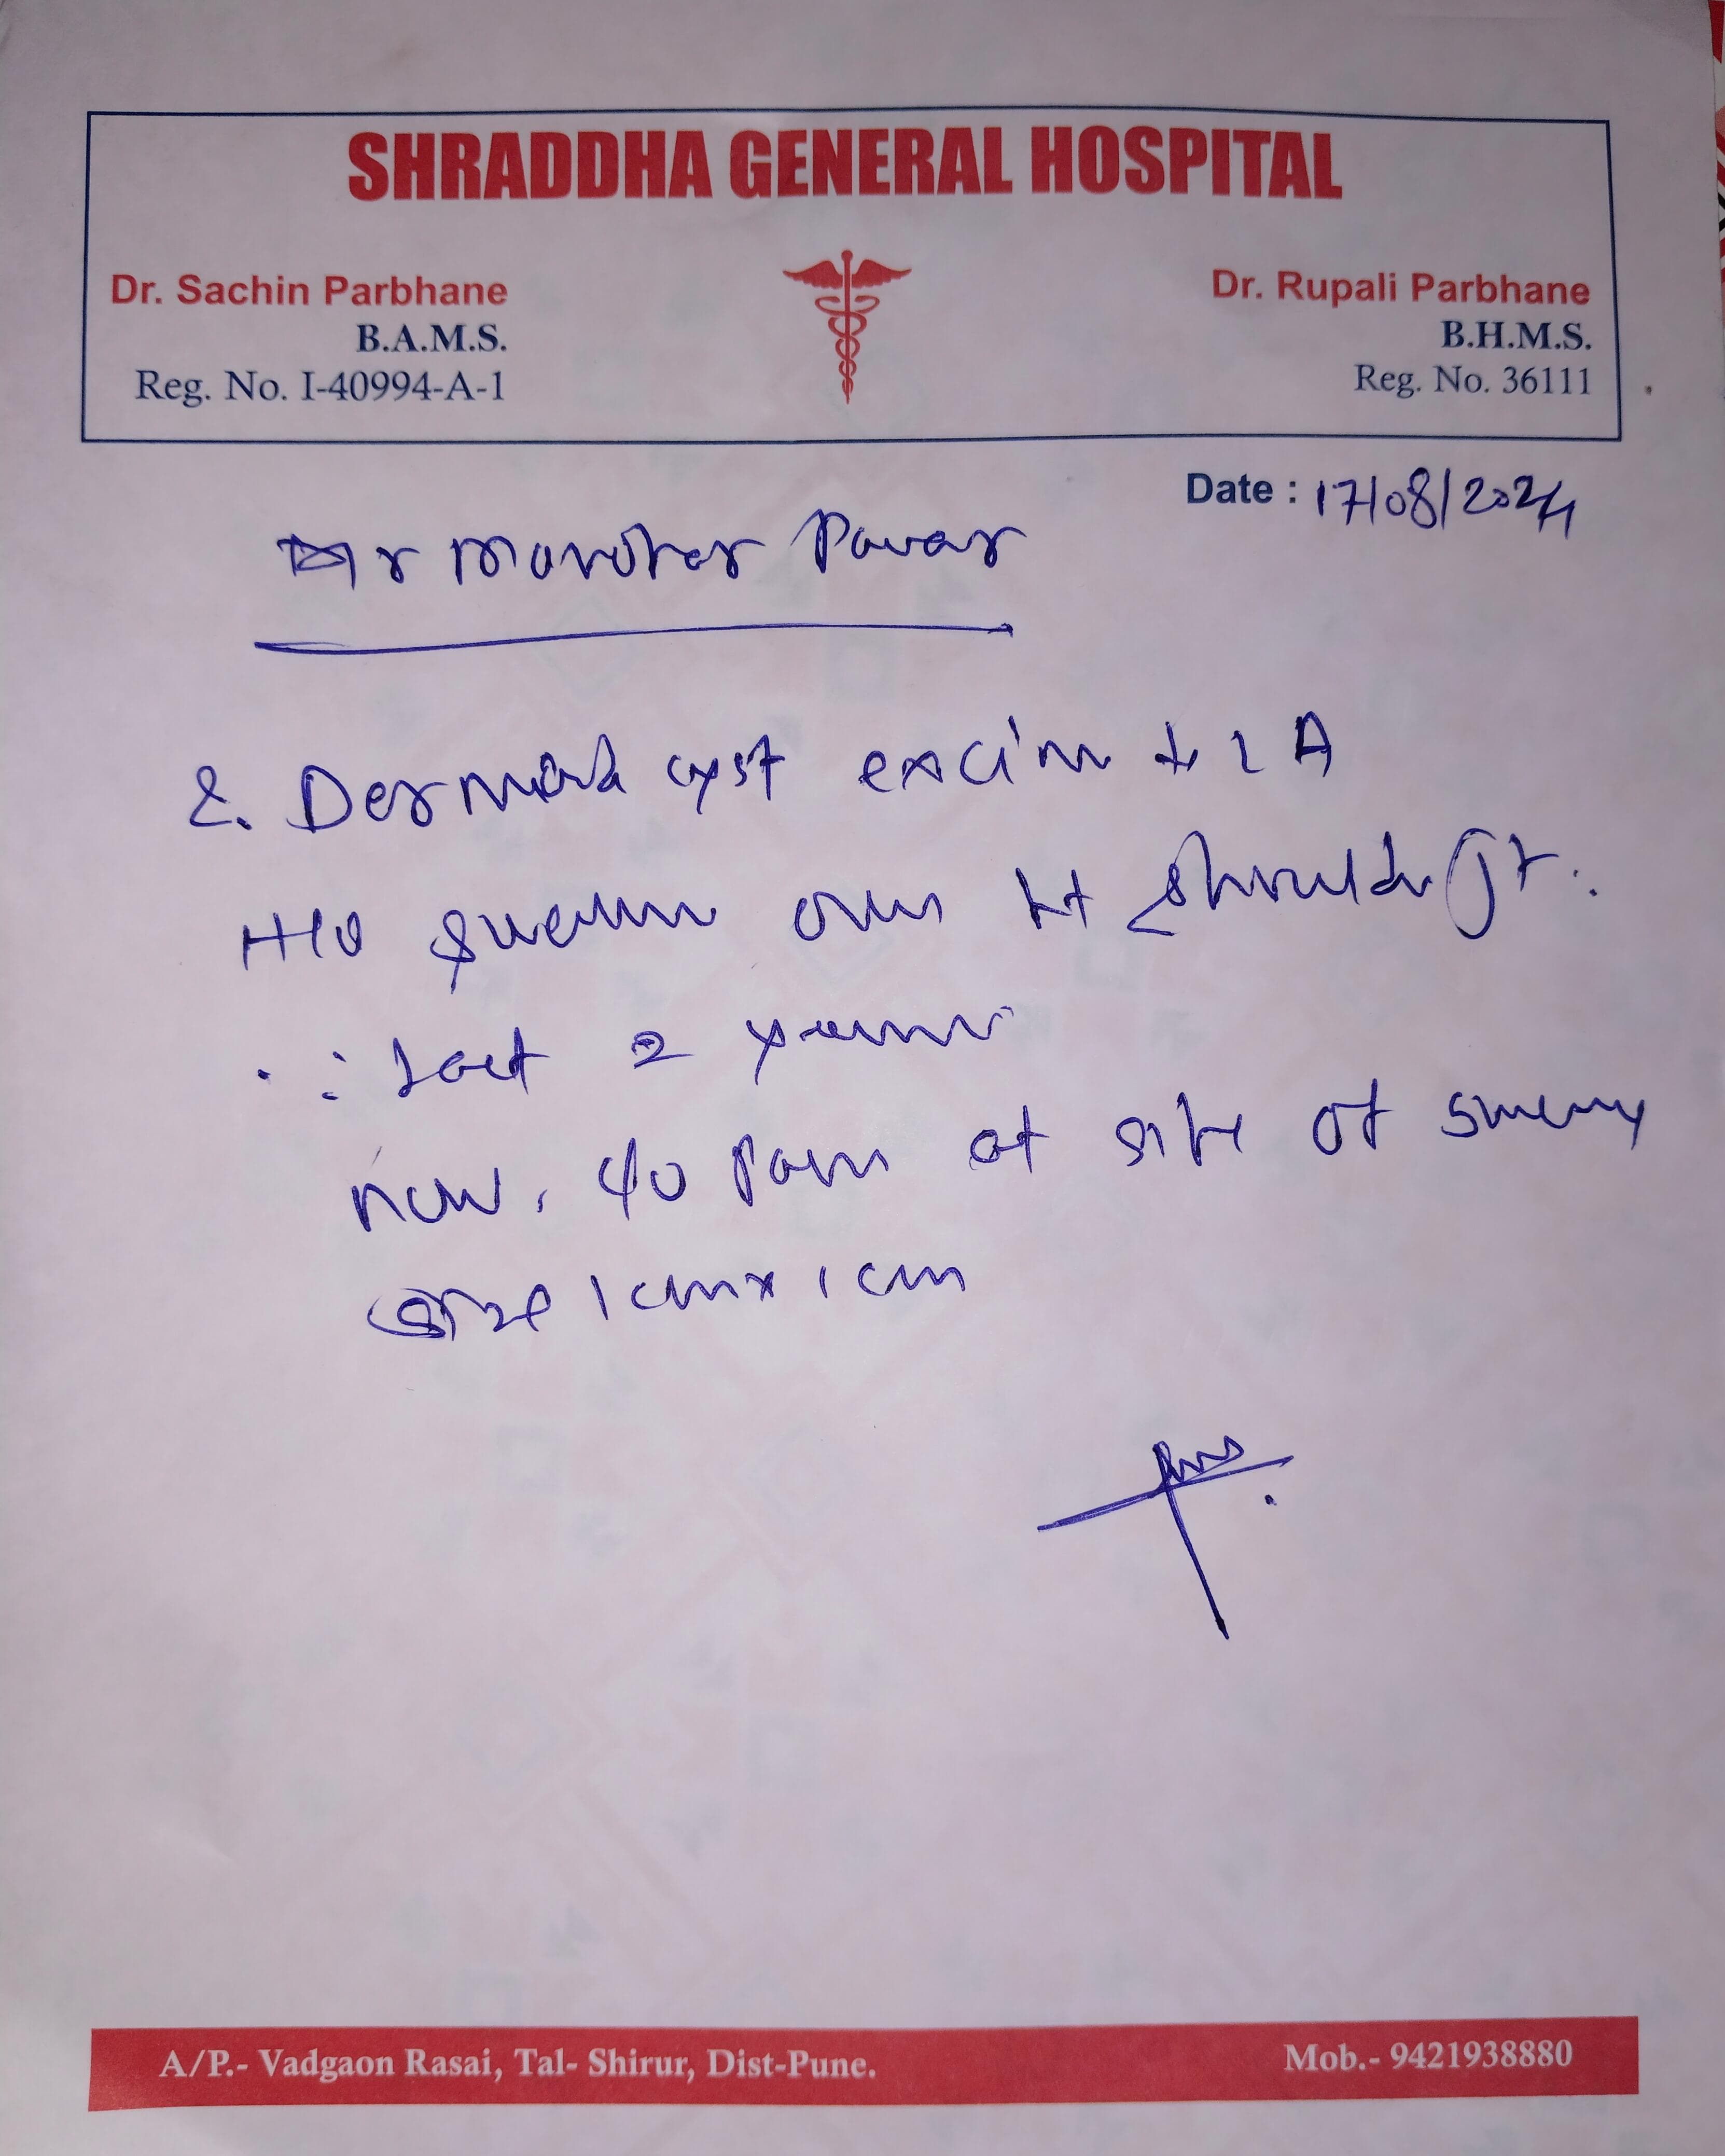 SHRADDHA GENERAL HOSPITAL
Dr. Sachin Parbhane
B.A.M.S.
Reg. No. I-40994-A-1
Dr. Rupali Parbhane
B.H.M.S.
Reg. No. 36111
Date : 17/08/2024
Mr Manohar Pawar
Dermoid cyst excision LA
H/O swelling over shoulder Jt.
: Last 2 years
now, c/o Pain at site of swelling
size 1cm x 1cm
A/P.- Vadgaon Rasai, Tal- Shirur, Dist-Pune.
Mob.- 9421938880